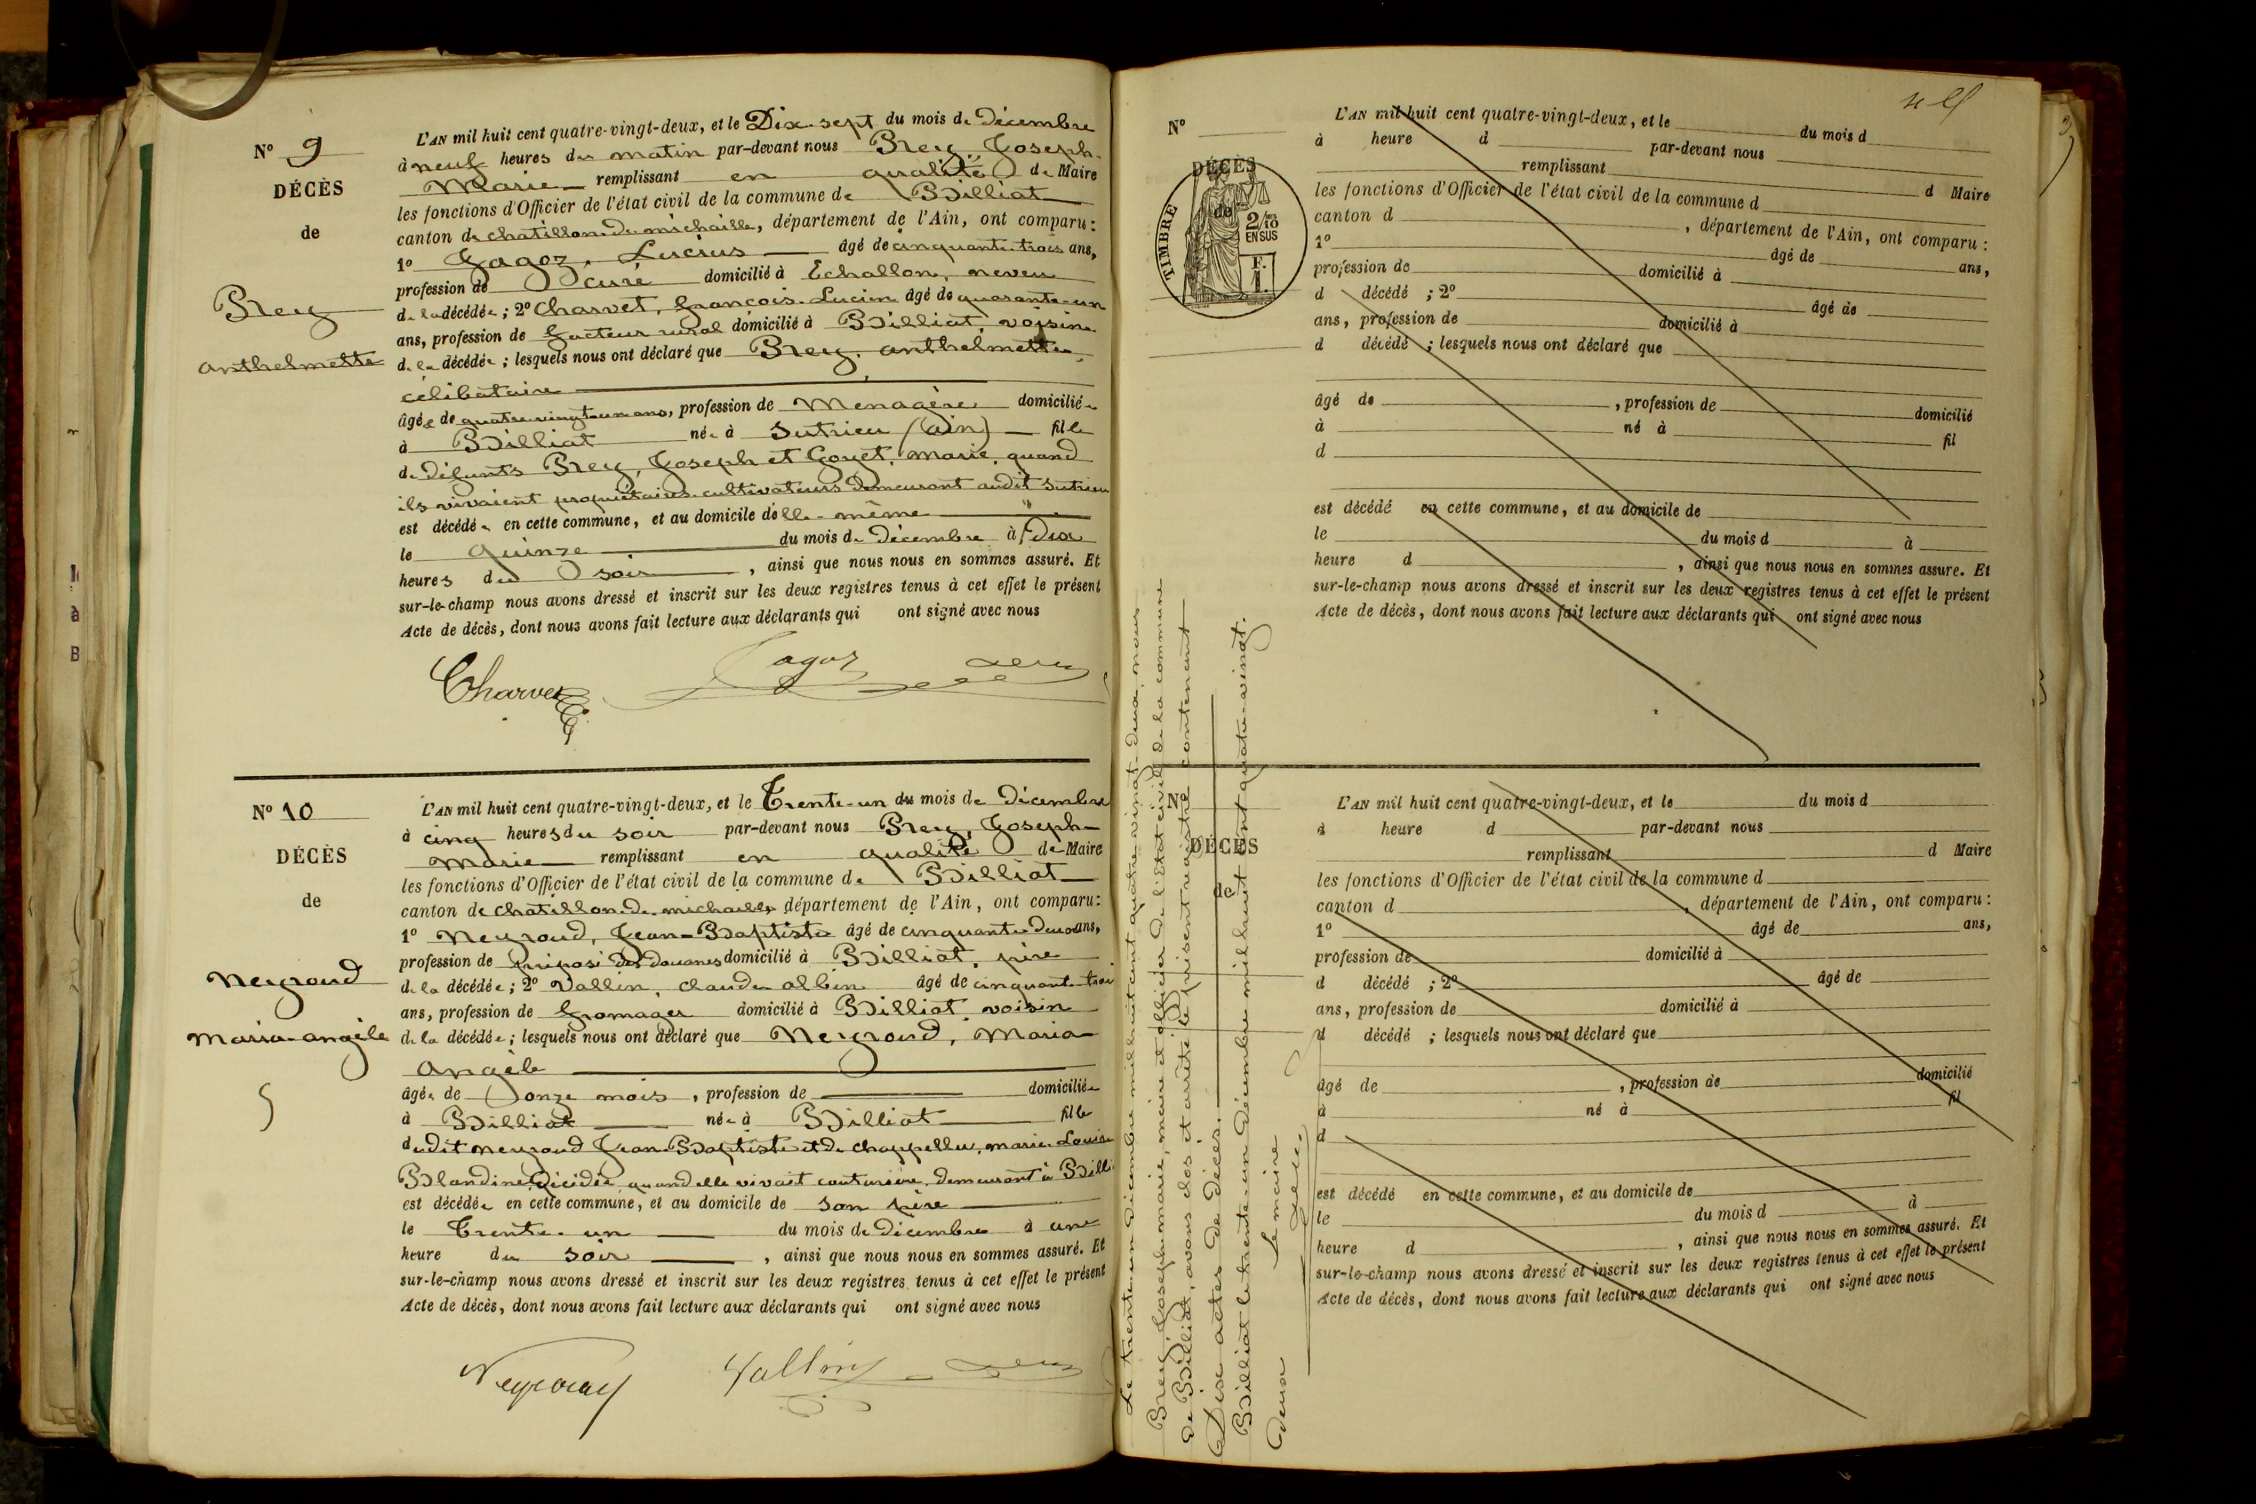 N° 9
DÉCÈS
de
Brey
anthelmette
L'AN mil huit cent quatre-vingt-deux, et le Dix-sept du mois de Décembre
à neuf heures du matin par-devant nous Brey, Joseph-
Marie remplissant en qualité de Maire
les fonctions d'Officier de l'état civil de la commune de Billiat
canton de chatillon-de-michaille, département de l'Ain, ont comparu :
1° Gagoz, Lucius âgé de cinquante-trois ans,
profession de curé domicilié à Echallon, neveu
de la décédée ; 2° Charvet, françois-Lucien âgé de quarante-un
ans, profession de facteur rural domicilié à Billiat, voisin
de la décédée ; lesquels nous ont déclaré que Brey, anthelmette,
célibataire
âgée de quatre-vingt-un ans, profession de Menagère domiciliée
à Billiat née à Sutrieu (ain) fille
de défunts Brey, Joseph et Goyet, marie, quand
ils vivaient propriétaires-cultivateurs demeurant audit Sutrieu
est décédée en cette commune, et au domicile d'elle-même
le quinze du mois de Décembre à Dix
heures du soir, ainsi que nous nous en sommes assuré. Et
sur-le-champ nous avons dressé et inscrit sur les deux registres tenus à cet effet le présent
Acte de décès, dont nous avons fait lecture aux déclarants qui ont signé avec nous
Charvet Gagoz Brey
N° 10
DÉCÈS
de
Neyroud
Maria-angèle
L'AN mil huit cent quatre-vingt-deux, et le Trente-un du mois de Décembre
à cinq heures du soir par-devant nous Brey, Joseph-
Marie remplissant en qualité de Maire
les fonctions d'Officier de l'état civil de la commune de Billiat
canton de chatillon-de-michaille, département de l'Ain, ont comparu :
1° Neyroud, Jean-Baptiste âgé de cinquante-deux ans,
profession de préposé des douanes domicilié à Billiat, père
de la décédée ; 2° Vallin, claude albin âgé de cinquante-trois
ans, profession de fromager domicilié à Billiat, voisin
de la décédée ; lesquels nous ont déclaré que Neyroud, Maria
Angèle
âgée de onze mois, profession de domiciliée
à Billiat née à Billiat fille
dudit Neyroud Jean-Baptiste et de chappellu, marie-Louise
Blandine décédée quand elle vivait couturière demeurant à Billiat
est décédée en cette commune, et au domicile de son père
le Trente-un du mois de Décembre à une
heure du soir, ainsi que nous nous en sommes assuré. Et
sur-le-champ nous avons dressé et inscrit sur les deux registres tenus à cet effet le présent
Acte de décès, dont nous avons fait lecture aux déclarants qui ont signé avec nous
Neyroud Vallin Brey
Le trente-un Décembre mil huit cent quatre-vingt-deux, nous
Brey, Joseph-marie, maire et officier de l'Etat civil de la commune
de Billiat, avons clos et arrêté le présent registre contenant
Dix actes de décès.
Billiat le trente-un Décembre mil huit cent quatre-vingt-
Deux Le maire
Brey
N°
DÉCÈS
de
TIMBRE
2/10
EN SUS
F.
1.
L'AN mil huit cent quatre-vingt-deux, et le du mois d
à heure d par-devant nous
remplissant d Maire
les fonctions d'Officier de l'état civil de la commune d
canton d , département de l'Ain, ont comparu :
1° âgé de ans,
profession de domicilié à
d décédé ; 2° âgé de
ans, profession de domicilié à
d décédé ; lesquels nous ont déclaré que
âgé de , profession de domicilié
à né à fil
d
est décédé en cette commune, et au domicile de
le du mois d à
heure d , ainsi que nous nous en sommes assuré. Et
sur-le-champ nous avons dressé et inscrit sur les deux registres tenus à cet effet le présent
Acte de décès, dont nous avons fait lecture aux déclarants qui ont signé avec nous
N°
DÉCÈS
de
L'AN mil huit cent quatre-vingt-deux, et le du mois d
à heure d par-devant nous
remplissant d Maire
les fonctions d'Officier de l'état civil de la commune d
canton d , département de l'Ain, ont comparu :
1° âgé de ans,
profession de domicilié à
d décédé ; 2° âgé de
ans, profession de domicilié à
d décédé ; lesquels nous ont déclaré que
âgé de , profession de domicilié
à né à fil
d
est décédé en cette commune, et au domicile de
le du mois d à
heure d , ainsi que nous nous en sommes assuré. Et
sur-le-champ nous avons dressé et inscrit sur les deux registres tenus à cet effet le présent
Acte de décès, dont nous avons fait lecture aux déclarants qui ont signé avec nous